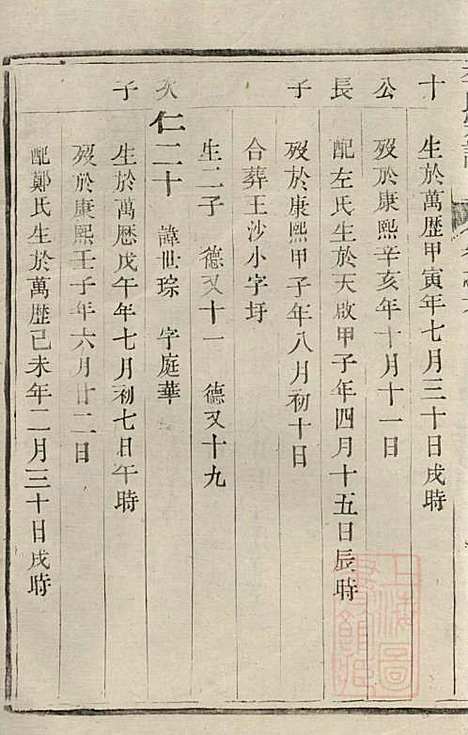 十 生於萬歷甲寅年七月三十日戌時
公 歿於康熙辛亥年十月十一日
長 配左氏生於天啟甲子年四月十五日辰時
子 歿於康熙甲子年八月初十日
合葬王沙小字圩
生二子 德又十一 德又十九
次 仁二十 諱世琮 字庭華
子 生於萬歷戊午年七月初七日午時
歿於康熙壬子年六月廿二日
配鄭氏生於萬歷己未年二月三十日戌時
上海圖
書館藏